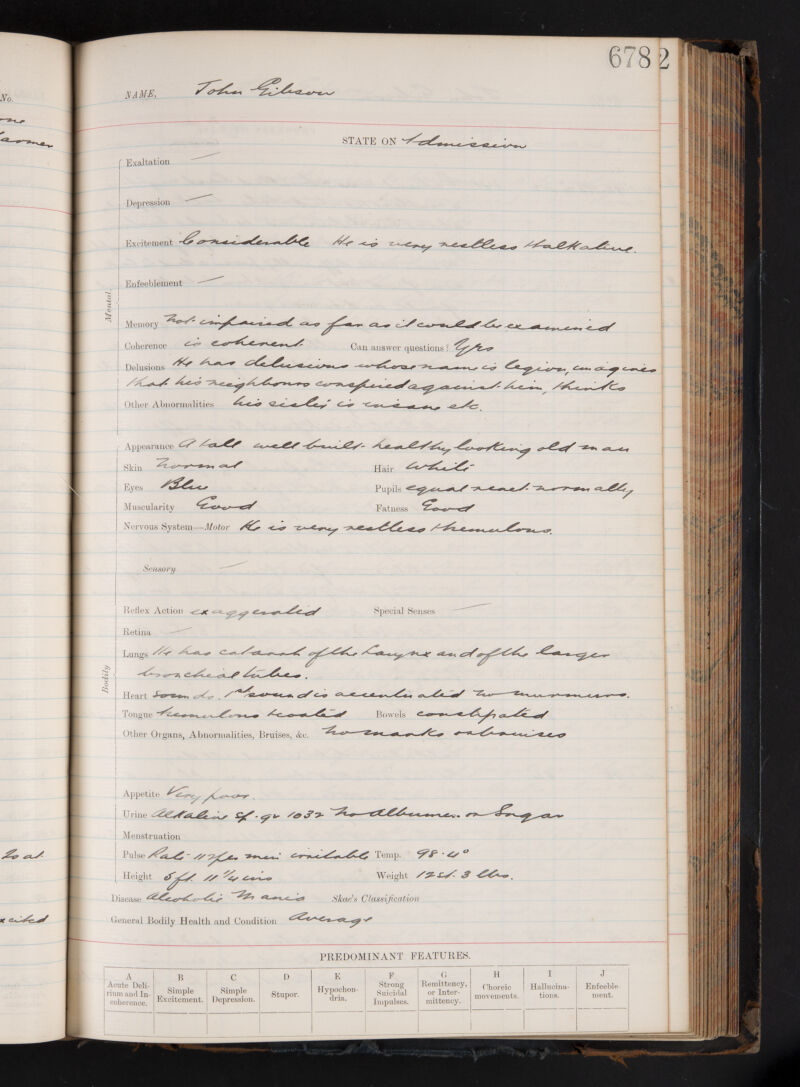 6782
No.
NAME, John Gibson
STATE ON Admission
Exaltation —
Depression —
Excitement Considerable He is very restless & talkative.
Enfeeblement —
Mental.
Memory not impaired as far as it could be examined
Coherence is coherent Can answer questions? Yes
Delusions He has delusions whose name is legion, imagines
that his neighbours conspired against him, thinks
Other Abnormalities his sister is insane etc.
Appearance A tall well built healthy looking old man
Skin Normal Hair White
Eyes Blue Pupils equal react normally
Muscularity Good Fatness Good
Nervous System—Motor He is very restless & tremulous.
Sensory —
Reflex Action exaggerated Special Senses —
Retina —
Bodily
Lungs He has catarrh of the Larynx and of the larger
bronchial tubes.
Heart sounds. 1st sound is accentuated no murmurs.
Tongue tremulous & coated Bowels constipated
Other Organs, Abnormalities, Bruises, &c. No marks or bruises
Appetite Very poor.
Urine Alkaline sp. gr 1032 No Albumen or Sugar
Menstruation
Pulse Rate 112 per min irritable Temp. 98.4°
Height 5 ft. 11 1/4 ins Weight 12 st. 3 lbs.
Disease Alcoholic Mania Skae's Classification
General Bodily Health and Condition Average
PREDOMINANT FEATURES.
A Acute Delirium and Incoherence.
B Simple Excitement.
C Simple Depression.
D Stupor.
E Hypochondria.
F Strong Suicidal Impulses.
G Remittency, or Intermittency.
H Choreic movements.
I Hallucinations.
J Enfeeblement.